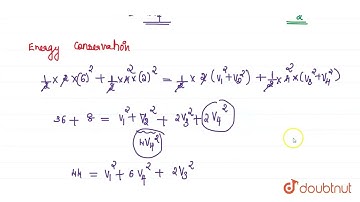 Energy Conservation
½ × 2 × (6)² + ½ × 4² × (2)² = ½ × 2 × (V₁² + V₂²) + ½ × 4² × (V₃² + V₄²)
36 + 8 = V₁² + V₂² + 2V₃² + 2V₄²
4V₄²
44 = V₁² + 6V₄² + 2V₃²
doubtnut